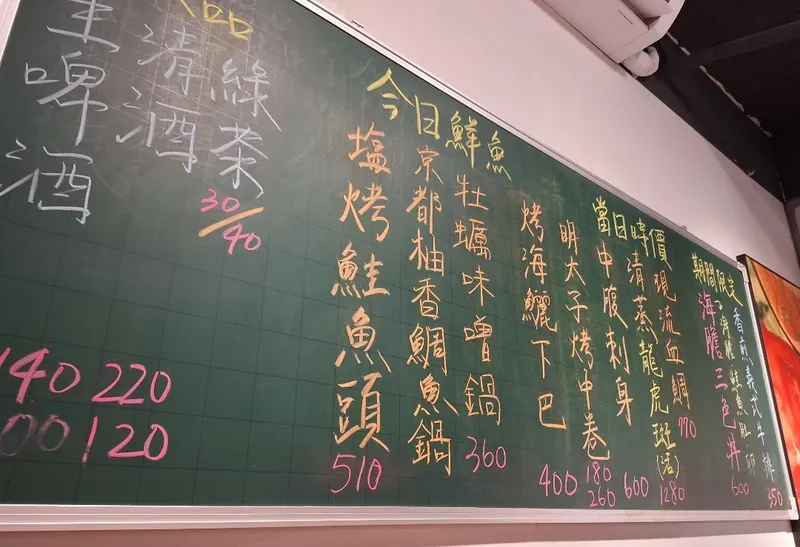 期間限定
香煎義式牛排
350
海膽三色丼
600
當日時價
現流血鯛
清蒸龍虎斑(活)
1280
中腹刺身
600
明太子烤中卷
180
260
烤海鱺下巴
400
今日鮮魚
牡蠣味噌鍋
360
京都柚香鯛魚鍋
塩烤鮭魚頭
510
綠茶
30/40
清酒
220
120
生啤酒
140